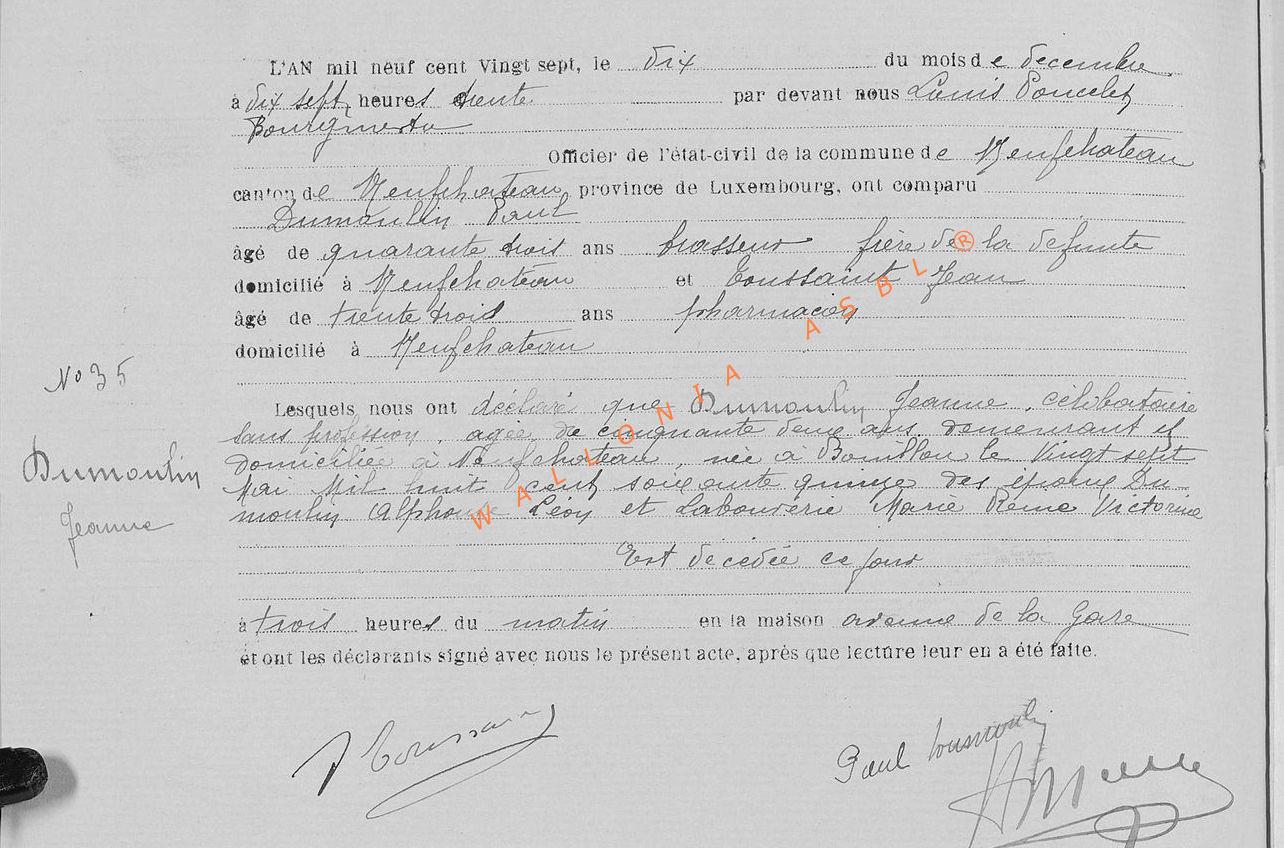 L'AN mil neuf cent Vingt sept, le dix du mois de decembre
à dix sept heures trente par devant nous Louis Poncelet
Bourgmestre
Officier de l'état-civil de la commune de Neufchateau
canton de Neufchateau, province de Luxembourg, ont comparu
Dumoulin Paul
âgé de quarante trois ans brasseur frère de la defunte
domicilié à Neufchateau et Toussaint Jean
âgé de trente trois ans pharmacien
domicilié à Neufchateau
No 35
Lesquels nous ont déclaré que Dumoulin Jeanne, célibataire
sans profession, agée de cinquante deux ans demeurant et
Dumoulin
domiciliée à Neufchateau, née à Bouillon le Vingt sept
Mai Mil huit cent soixante quinze des époux Du-
Jeanne
moulin Alphonse Léon et Labouverie Marie Reine Victorine
Est decedée ce jour
à trois heures du matin en la maison avenue de la Gare
et ont les déclarants signé avec nous le présent acte, après que lecture leur en a été faite.
J Toussaint
Paul Dumoulin
WALLONIA ASBL ®